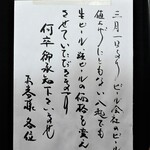 三月一日より ビール会社のビール
値上げにともない 八起でも
生ビール 瓶ビールの価格も変え
させていただきます
何卒御承知下さいませ
お客様各位